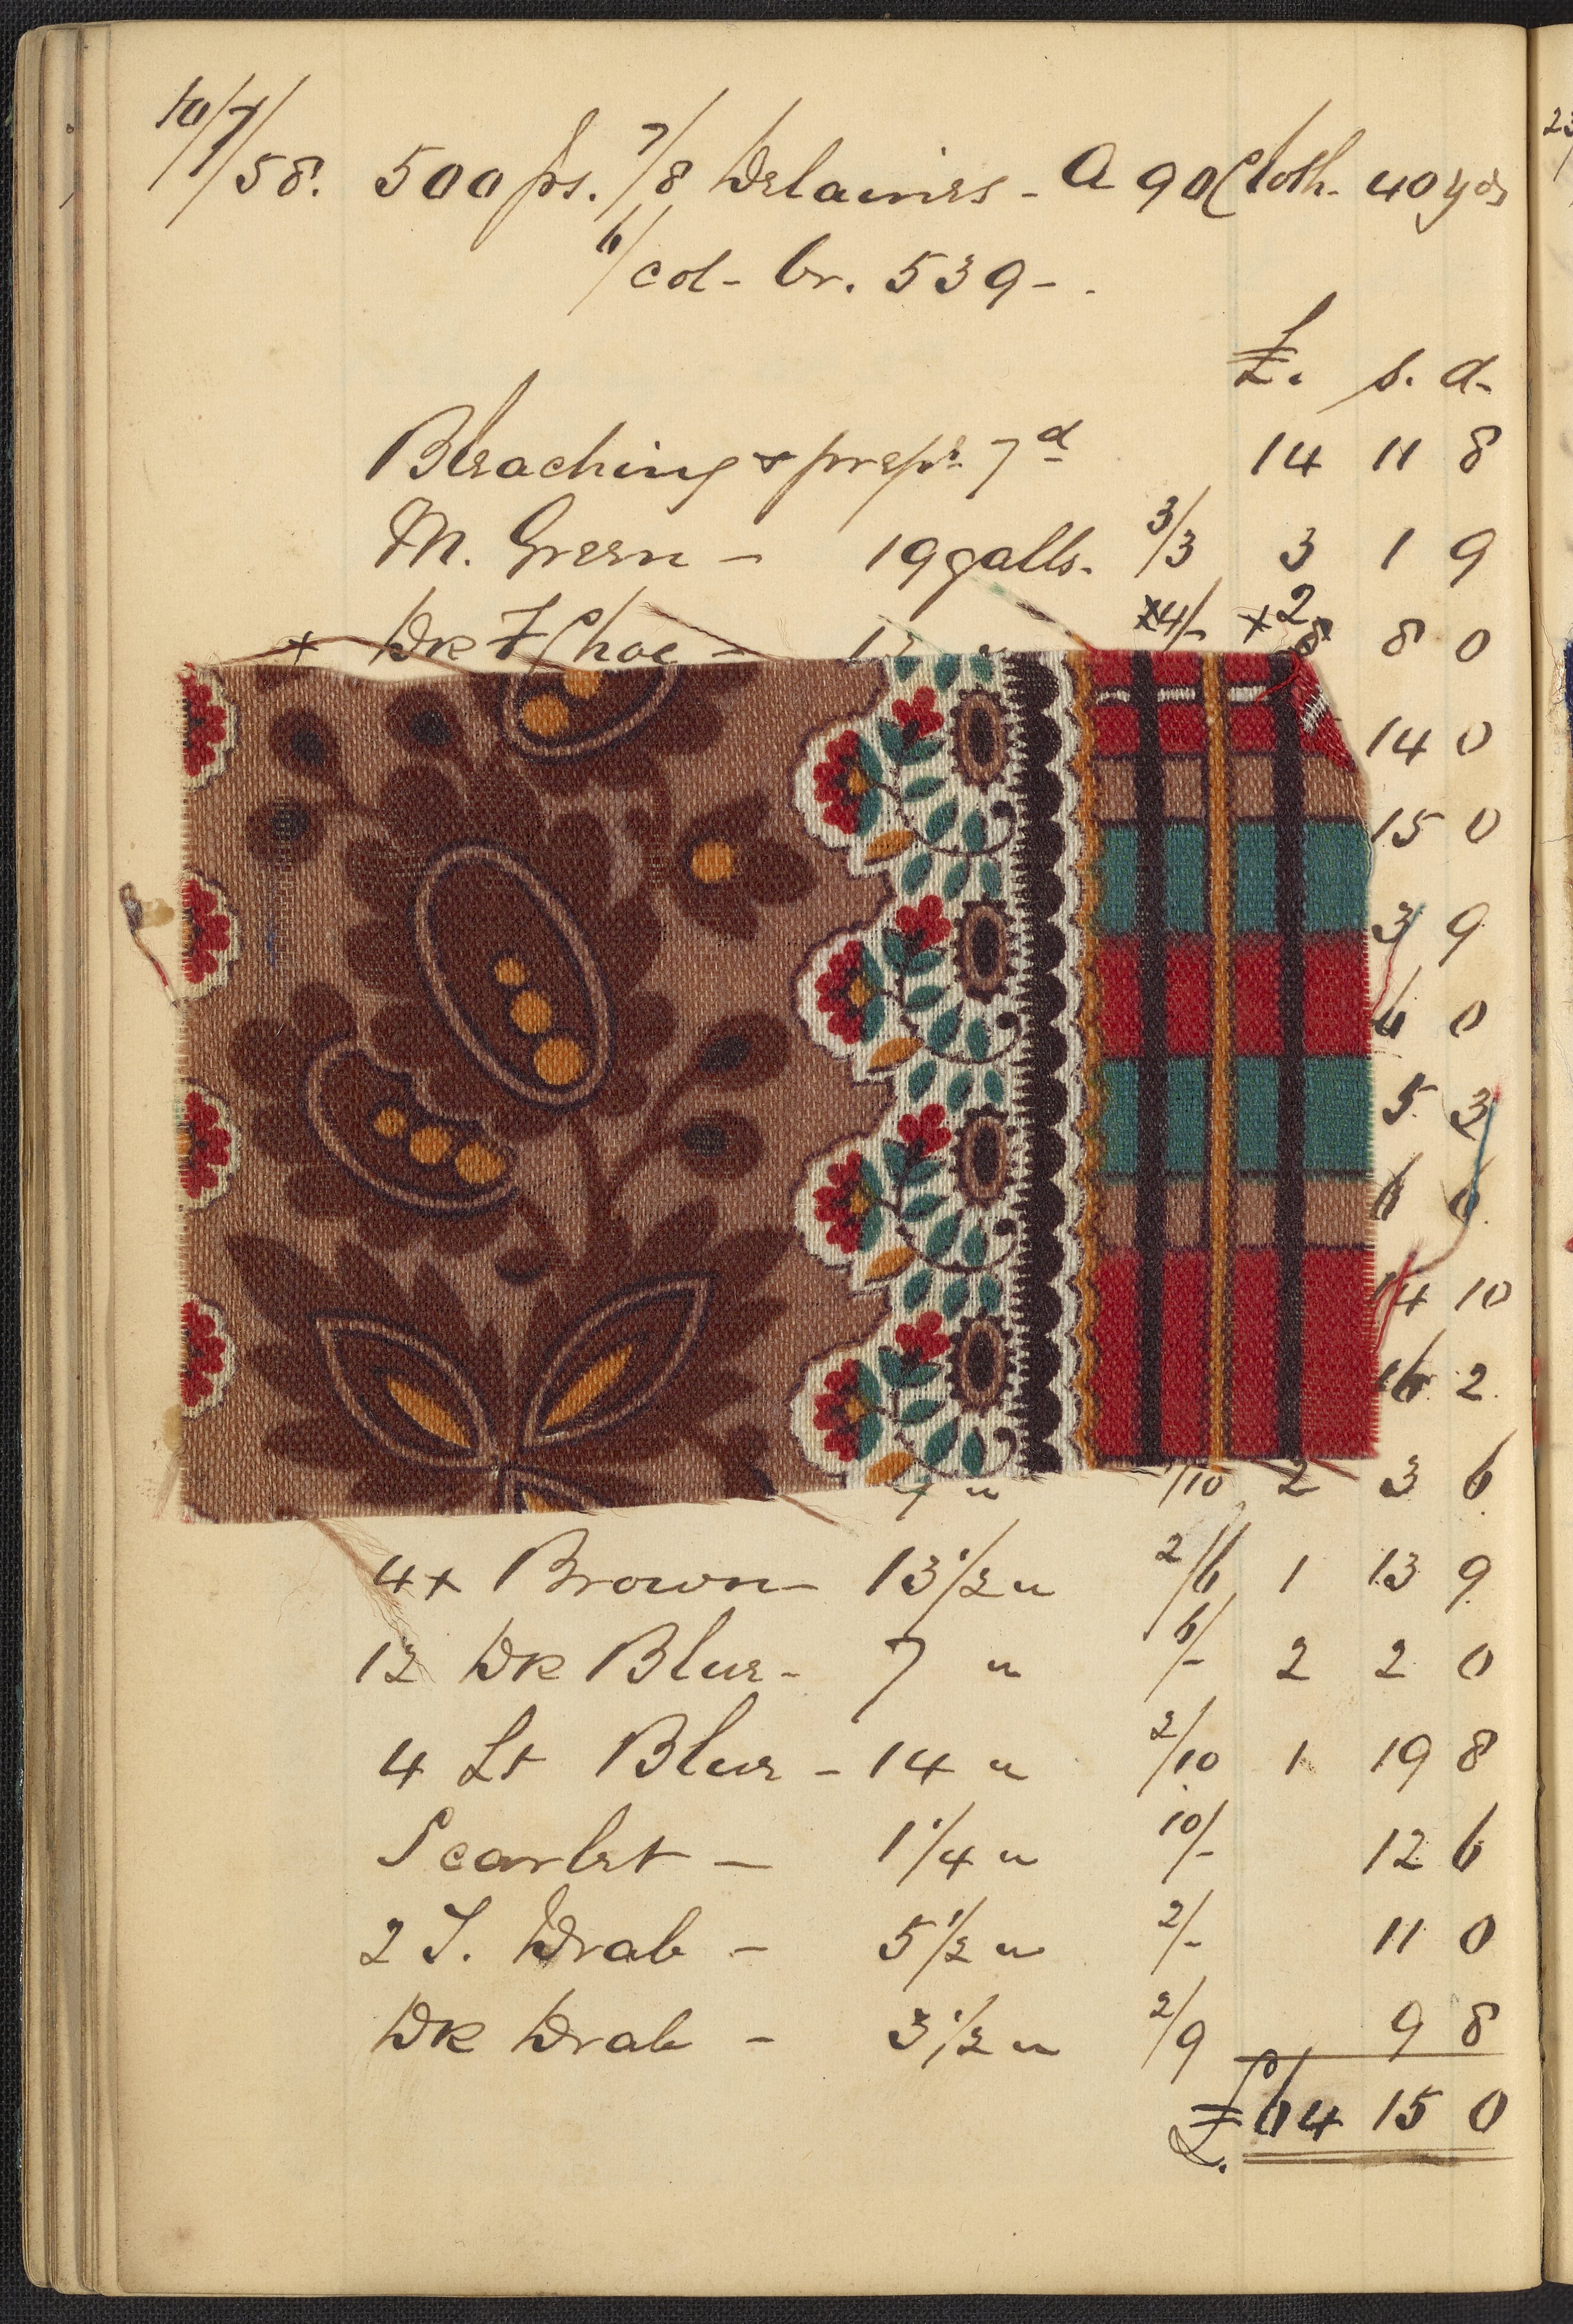 10/7/58. 500 ps. 7/8 Delaines - A 90 Cloth. 40 yds
6/col - br. 539 -.
£. s. d.
Bleaching & prepg. 7d 14 11 8
M. Green - 19 galls. 3/3 3 1 9
x Dk Choc - x4/- x2 8 0
14 0
15 0
3 9
6 0
5 3
6 6
14 10
16 2
" /10 2 3 6
4x Brown - 13 1/2 " 2/6 1 13 9
12 Dk Blue - 7 " 6/- 2 2 0
4 Lt Blue - 14 " 2/10 1 19 8
Scarlet - 1 1/4 " 10/- 12 6
2 T. Drab - 5 1/2 " 2/- 11 0
Dk Drab - 3 1/2 " 2/9 9 8
£64 15 0
23